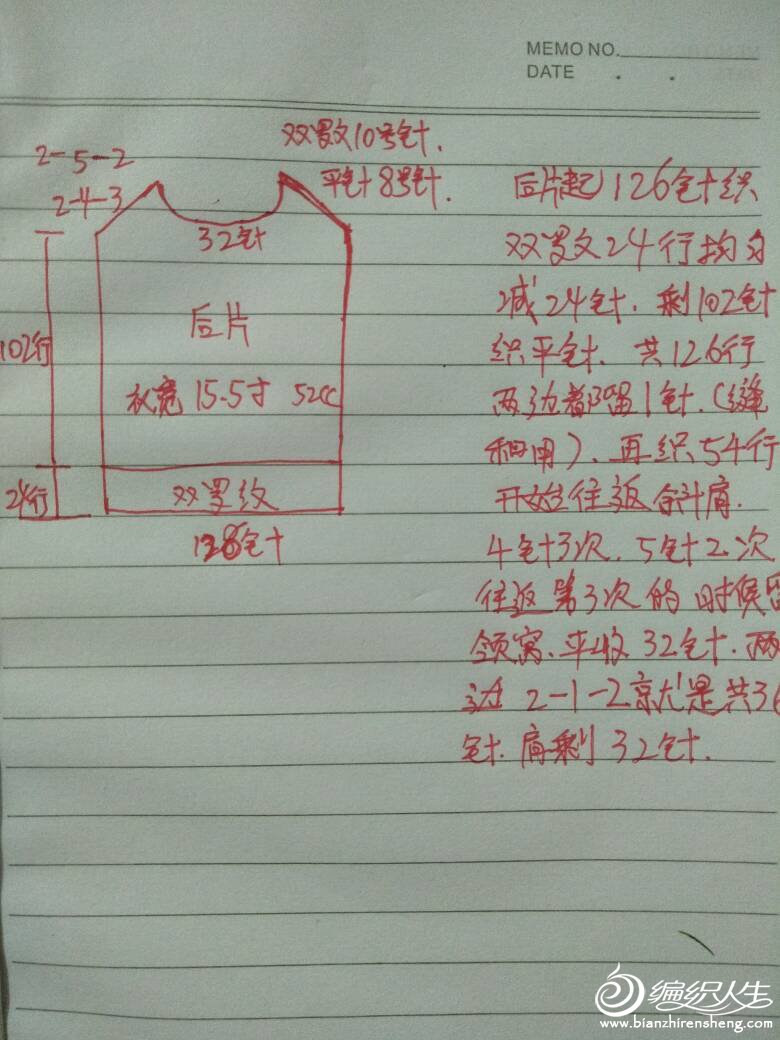 MEMO NO.
DATE . .
双罗纹10号针.
平针8号针.
2-5-2
2-4-3
32针
102行
后片
衣宽15.5寸 52cc
24行
双罗纹
128针
后片起126针织
双罗纹24行均匀
减24针.剩102针
织平针.共126行
两边都留1针.(缝
和用).再织54行
开始往返余斜肩.
4针3次.5针2次.
往返第3次的时候留
领窝.平收32针.两
边2-1-2就是共36
针.肩剩32针.
编织人生
www.bianzhirensheng.com